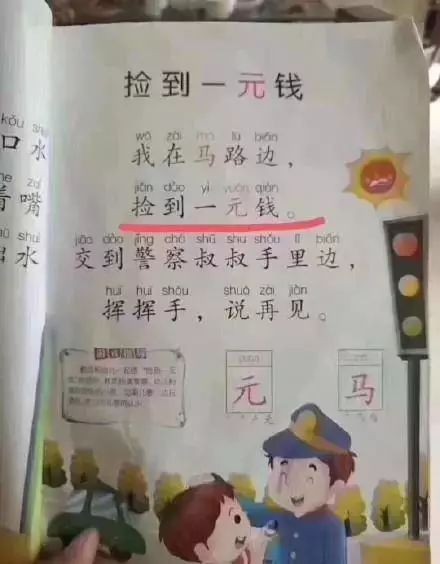 捡到一元钱
wǒ zài mǎ lù biān
我在马路边，
jiǎn dào yì yuán qián
捡到一元钱。
jiāo dào jǐng chá shū shu shǒu lǐ biān
交到警察叔叔手里边，
huī huī shǒu shuō zài jiàn
挥挥手，说再见。
kǒu shuǐ
口水
zuǐ
着嘴
shuǐ
水
yuán
元
马